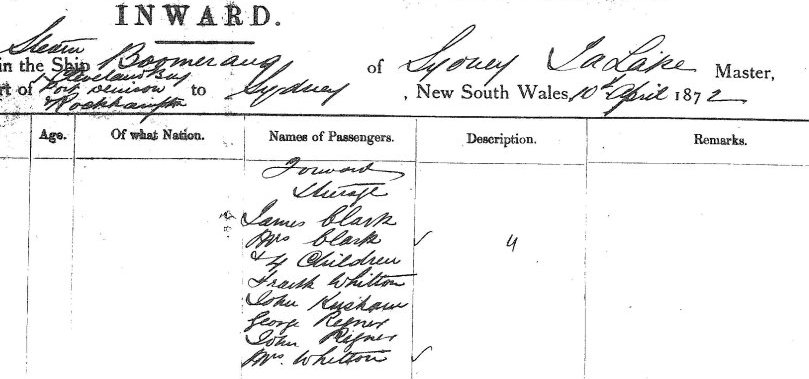 INWARD.
Steam
in the Ship Boomerang of Sydney Master,
Cleveland Bay
Port Denison
rt of & Rockhampton to Sydney, New South Wales, 10th April 1872
Age. Of what Nation. Names of Passengers. Description. Remarks.
Forward
Steerage
James Clark
Mrs Clark ✓ 4
& 4 Children
Frank Whitton
John
George Rigner
John Rigner
Mrs. Whitton ✓